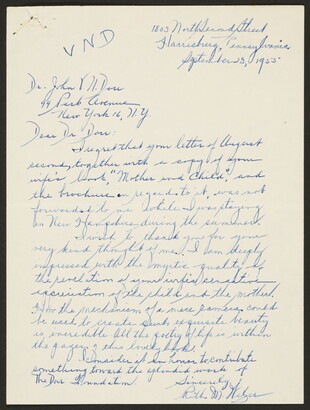 VND
1803 North Second Street
Harrisburg, Pennsylvania
September 23, 1955
Dr. John V. N. Dorr
99 Park Avenue
New York 16, N.Y.
Dear Dr. Dorr:
I regret that your letter of August
second, together with a copy of your
wife's book, "Mother and Child", and
the brochure in regard to it, was not
forwarded to me while I was staying
in New Hampshire during the summer.
I want to thank you for your
very kind thought of me. I am deeply
impressed with the mystic quality of
the revelation of your wife's
of the child and the mother.
How the mechanism of a mere camera, could
be used to create such exquisite beauty
is incredible. All the of is within
the pages of this lovely book!
I consider it an honor to contribute
something toward the splendid work of
The Dorr Foundation.
Sincerely,
Ruth M.